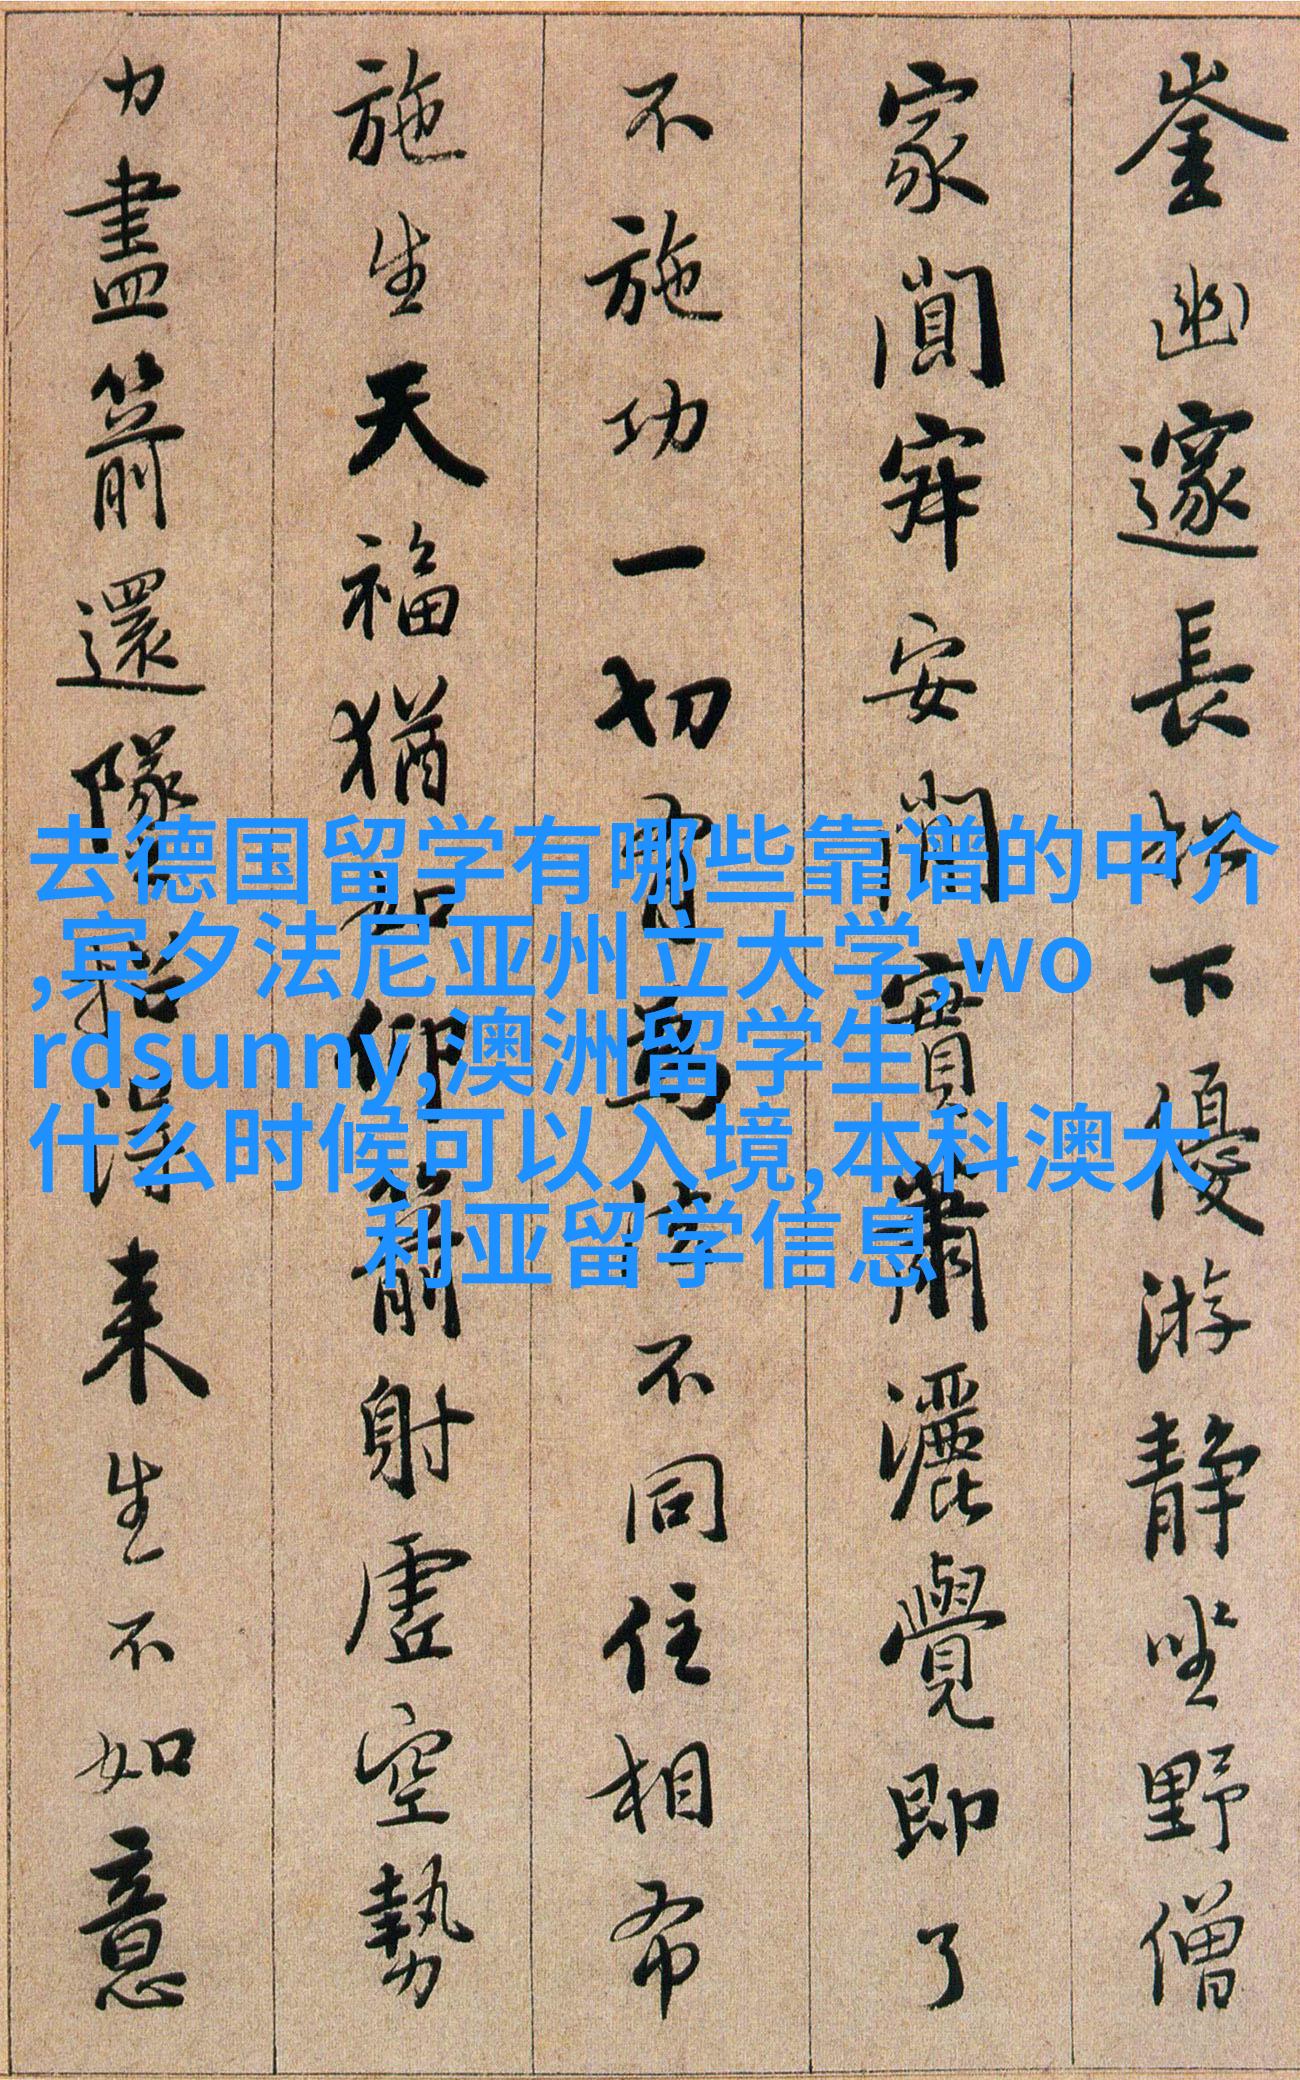 崟幽邃長松下優游静坐野僧
家闃寂安閑實蕭灑覺即了
不施功一切有為法不同住相布
施生天福猶如仰箭射虚空勢
力盡箭還墜招得来生不如意
去德国留学有哪些靠谱的中介
,宾夕法尼亚州立大学,wo
rdsunny,澳洲留学生
什么时候可以入境,本科澳大
利亚留学信息